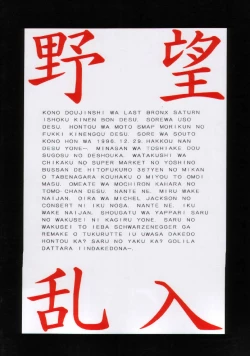 野望
KONO DOUJINSHI WA LAST BRONX SATURN
ISHOKU KINEN BON DESU. SOREWA USO
DESU. HONTOU WA MOTO SMAP MORIKUN NO
FUKKI KINENGOU DESU. SORE WA SOUTO
KONO HON WA 1996.12.29.HAKKOU NAN
DESU YONE~. MINASAN WA TOSHIAKE DOU
SUGOSU NO DESHOUKA. WATAKUSHI WA
CHIKAKU NO SUPER MARKET NO YOSHINO
BUSSAN DE HITOFUKURO 367YEN NO MIKAN
O TABENAGARA KOUHAKU O MIYOU TO OMOI
MASU. OMEATE WA MOCHIRON KAHARA NO
TOMO-CHAN DESU. NANTE NE. MIRU WAKE
NAIJAN. DIKA WA MICHEL JACKSON NO
CONSERT NI IKU NOSA. NANTE NE. IKU
WAKE NAIJAN. SHOUGATU WA YAPPARI SARU
NO WAKUSEI NI KAGIRU YONE. SARU NO
WAKUSEI TO IEBA SCHWARZENEGGER GA
REMAKE O TUKURUTTE IU UWASA DAKEDO
HONTOU KA? SARU NO YAKU KA? GOLILA
DATTARA IINDAKEDONA~.
乱入